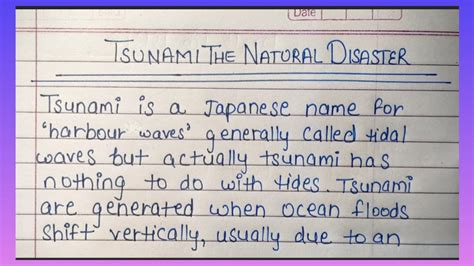 Date
TSUNAMI THE NATURAL DISASTER
Tsunami is a Japanese name for
'harbour waves' generally called tidal
waves but actually tsunami has
nothing to do with tides. Tsunami
are generated when ocean floods
shift vertically, usually due to an